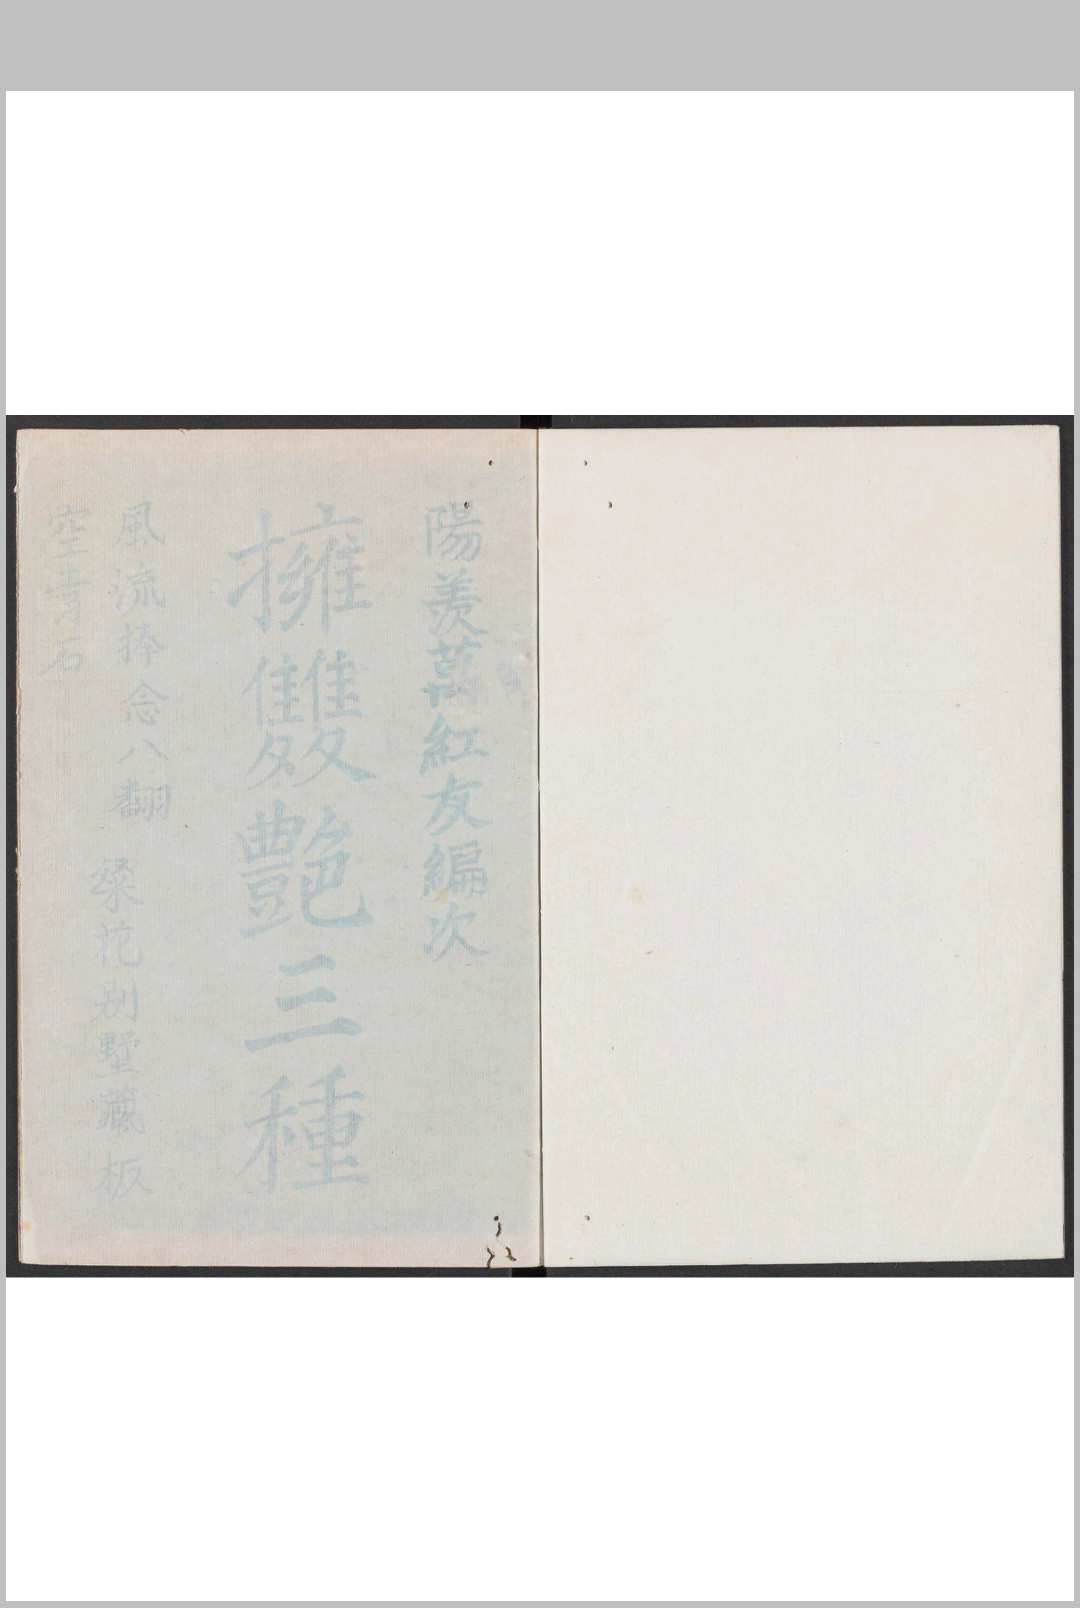 陽羨萬紅友編次
擁雙艷三種
風流棒 念八翻
空青石
粲花別墅藏板